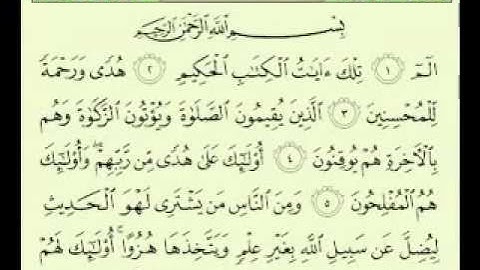 بِسْمِ اللَّهِ الرَّحْمَٰنِ الرَّحِيمِ
الٓمٓ ١ تِلْكَ ءَايَٰتُ الْكِتَٰبِ الْحَكِيمِ ٢ هُدًى وَرَحْمَةً
لِّلْمُحْسِنِينَ ٣ الَّذِينَ يُقِيمُونَ الصَّلَوٰةَ وَيُؤْتُونَ الزَّكَوٰةَ وَهُم
بِالْءَاخِرَةِ هُمْ يُوقِنُونَ ٤ أُوْلَٰٓئِكَ عَلَىٰ هُدًى مِّن رَّبِّهِمْ ۖ وَأُوْلَٰٓئِكَ
هُمُ الْمُفْلِحُونَ ٥ وَمِنَ النَّاسِ مَن يَشْتَرِى لَهْوَ الْحَدِيثِ
لِيُضِلَّ عَن سَبِيلِ اللَّهِ بِغَيْرِ عِلْمٍ وَيَتَّخِذَهَا هُزُوًا ۚ أُوْلَٰٓئِكَ لَهُمْ